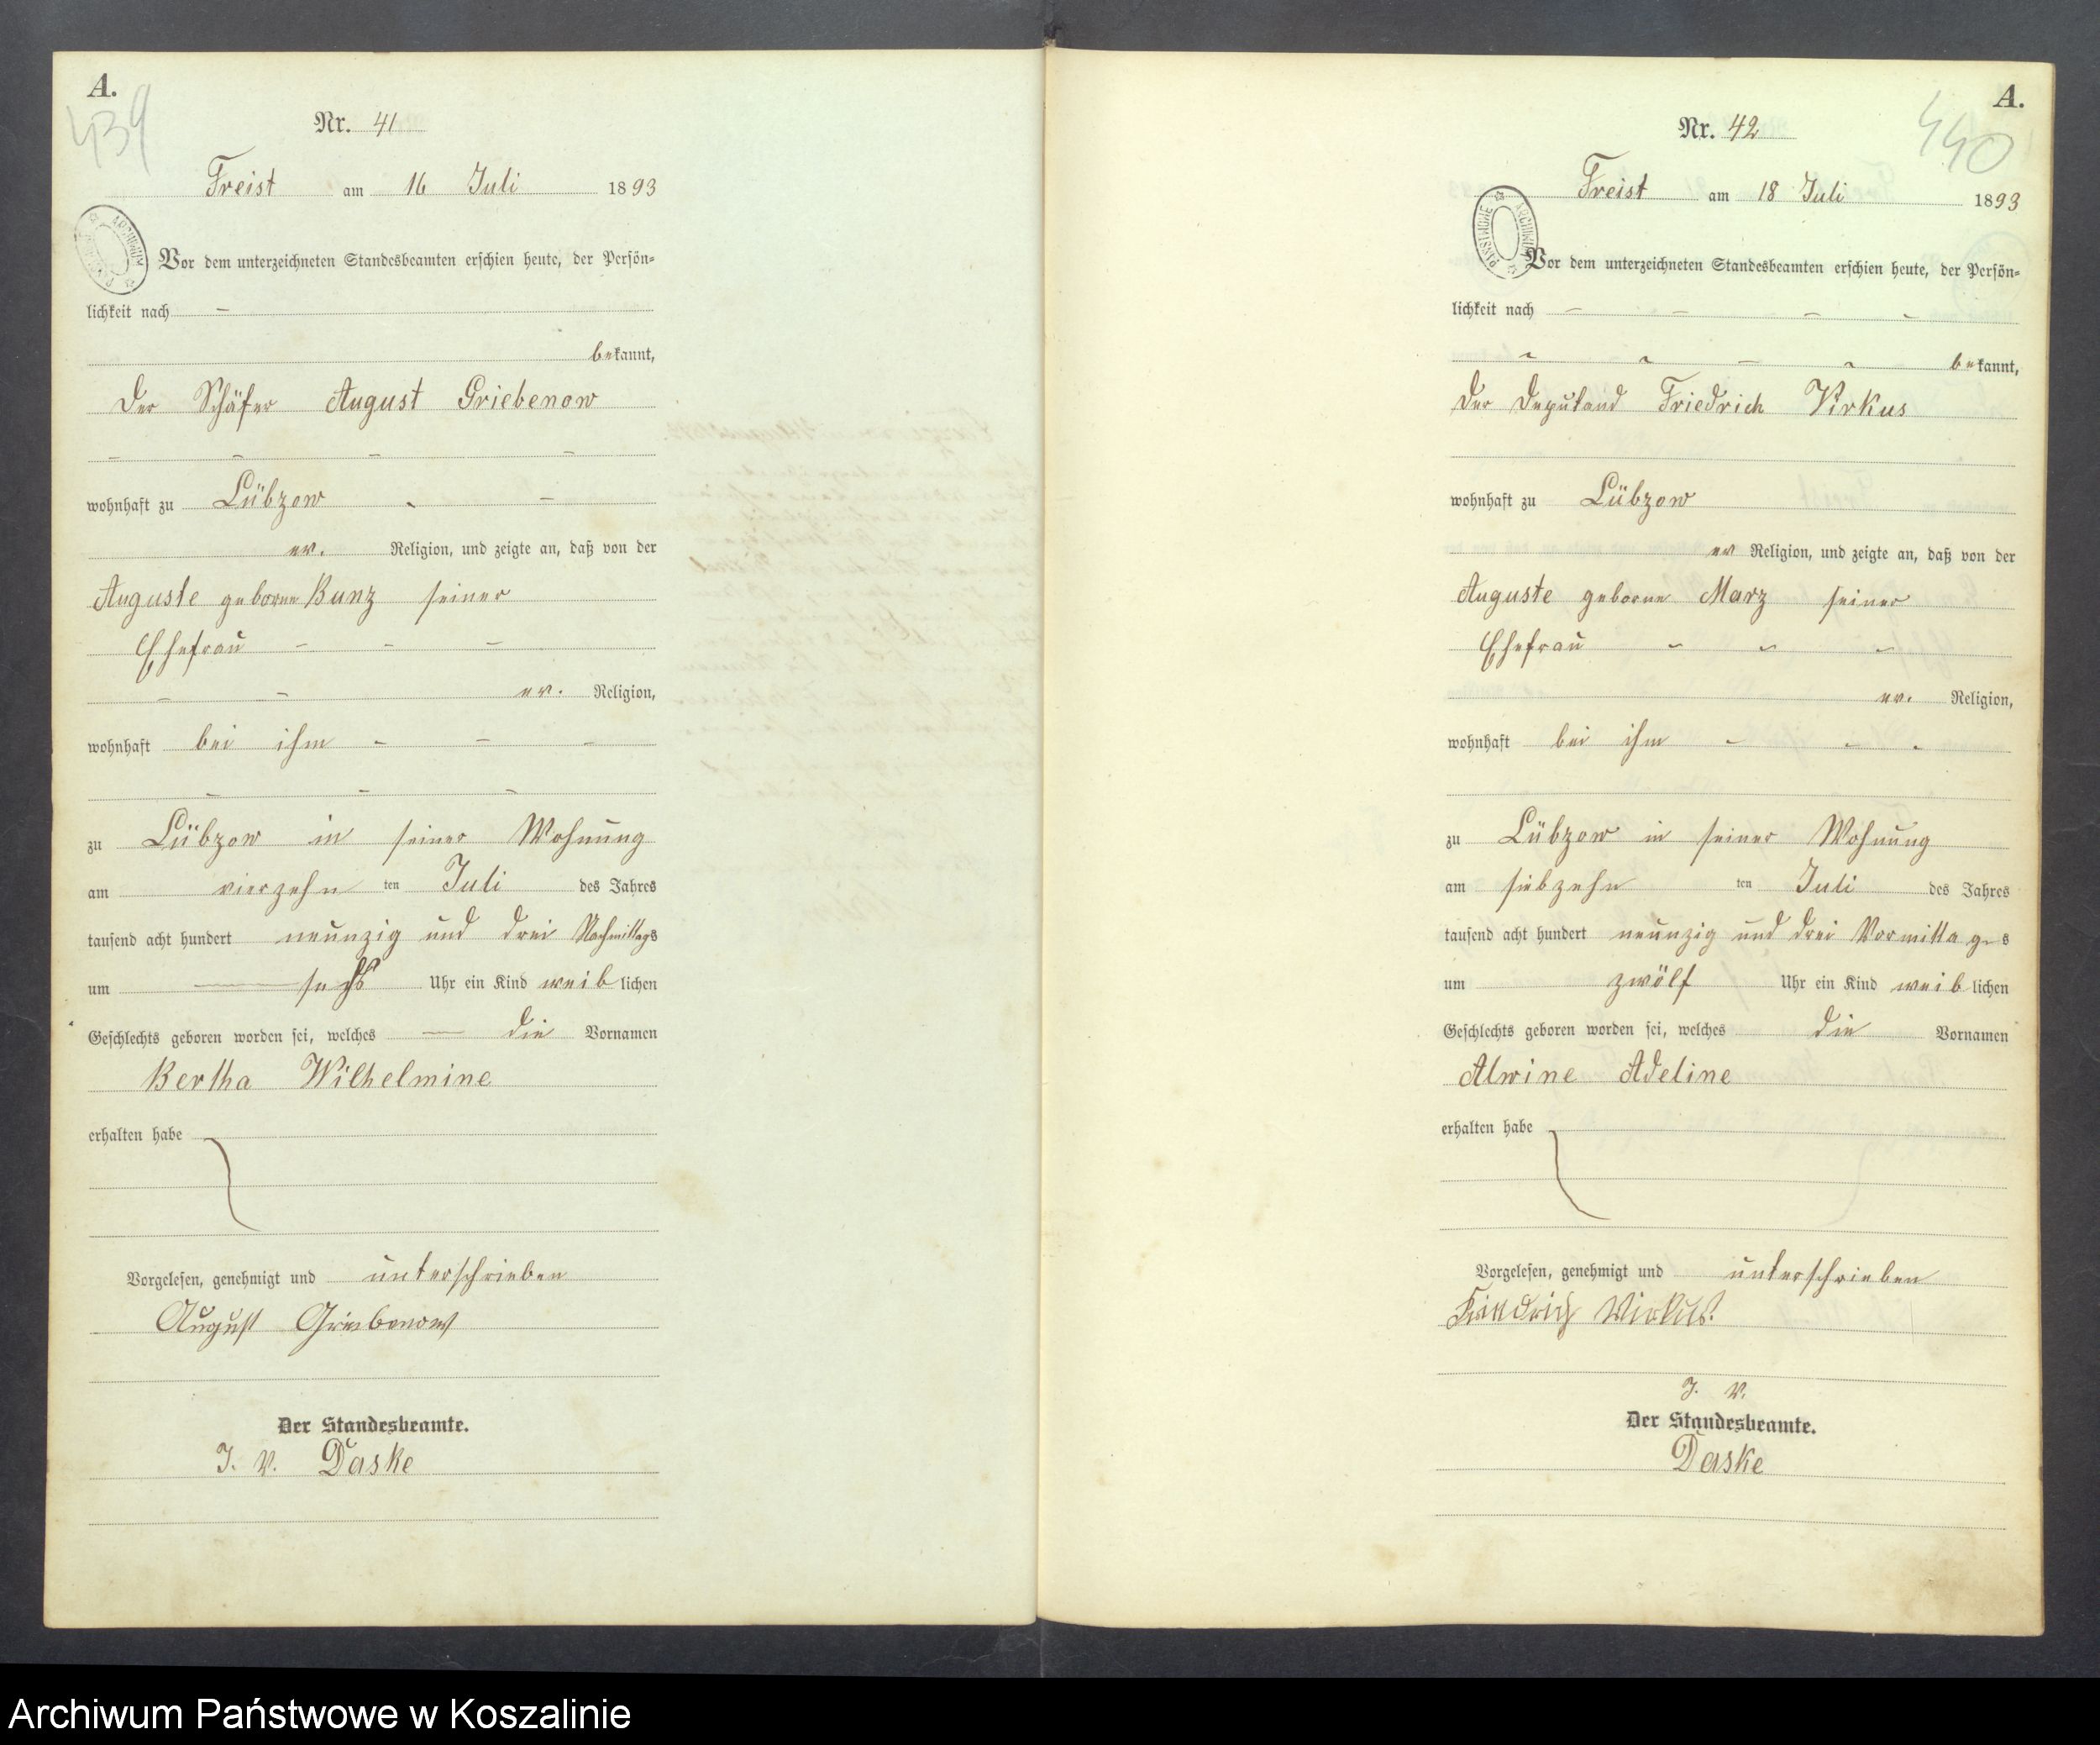 A.
439
Nr. 41
Freist am 16 Juli 1893
Vor dem unterzeichneten Standesbeamten erschien heute, der Persön=
lichkeit nach –
bekannt,
Der Schäfer August Griebenow
– – – –
wohnhaft zu Lübzow – –
ev. Religion, und zeigte an, daß von der
Auguste geborne Bunz seiner
Ehefrau – – –
– – ev. Religion,
wohnhaft bei ihm – – –
– – –
zu Lübzow in seiner Wohnung
am vierzehn ten Juli des Jahres
tausend acht hundert neunzig und drei Nachmittags
um — sechs Uhr ein Kind weiblichen
Geschlechts geboren worden sei, welches — die Vornamen
Bertha Wilhelmine
erhalten habe
Vorgelesen, genehmigt und unterschrieben
August Griebenow
Der Standesbeamte.
J. V. Daske
A.
440
Nr. 42
Freist am 18 Juli 1893
PAŃSTWOWE ARCHIWUM
Vor dem unterzeichneten Standesbeamten erschien heute, der Persön=
lichkeit nach – – – –
– – – – bekannt,
Der Deputand Friedrich Virkus
wohnhaft zu Lübzow
ev Religion, und zeigte an, daß von der
Auguste geborne Marz seiner
Ehefrau – – –
ev. Religion,
wohnhaft bei ihm – – –
zu Lübzow in seiner Wohnung
am siebzehn ten Juli des Jahres
tausend acht hundert neunzig und drei Vormittages
um zwölf Uhr ein Kind weiblichen
Geschlechts geboren worden sei, welches die Vornamen
Alwine Adeline
erhalten habe
Vorgelesen, genehmigt und unterschrieben
Friedrich Virkus.
J. V.
Der Standesbeamte.
Daske
Archiwum Państwowe w Koszalinie